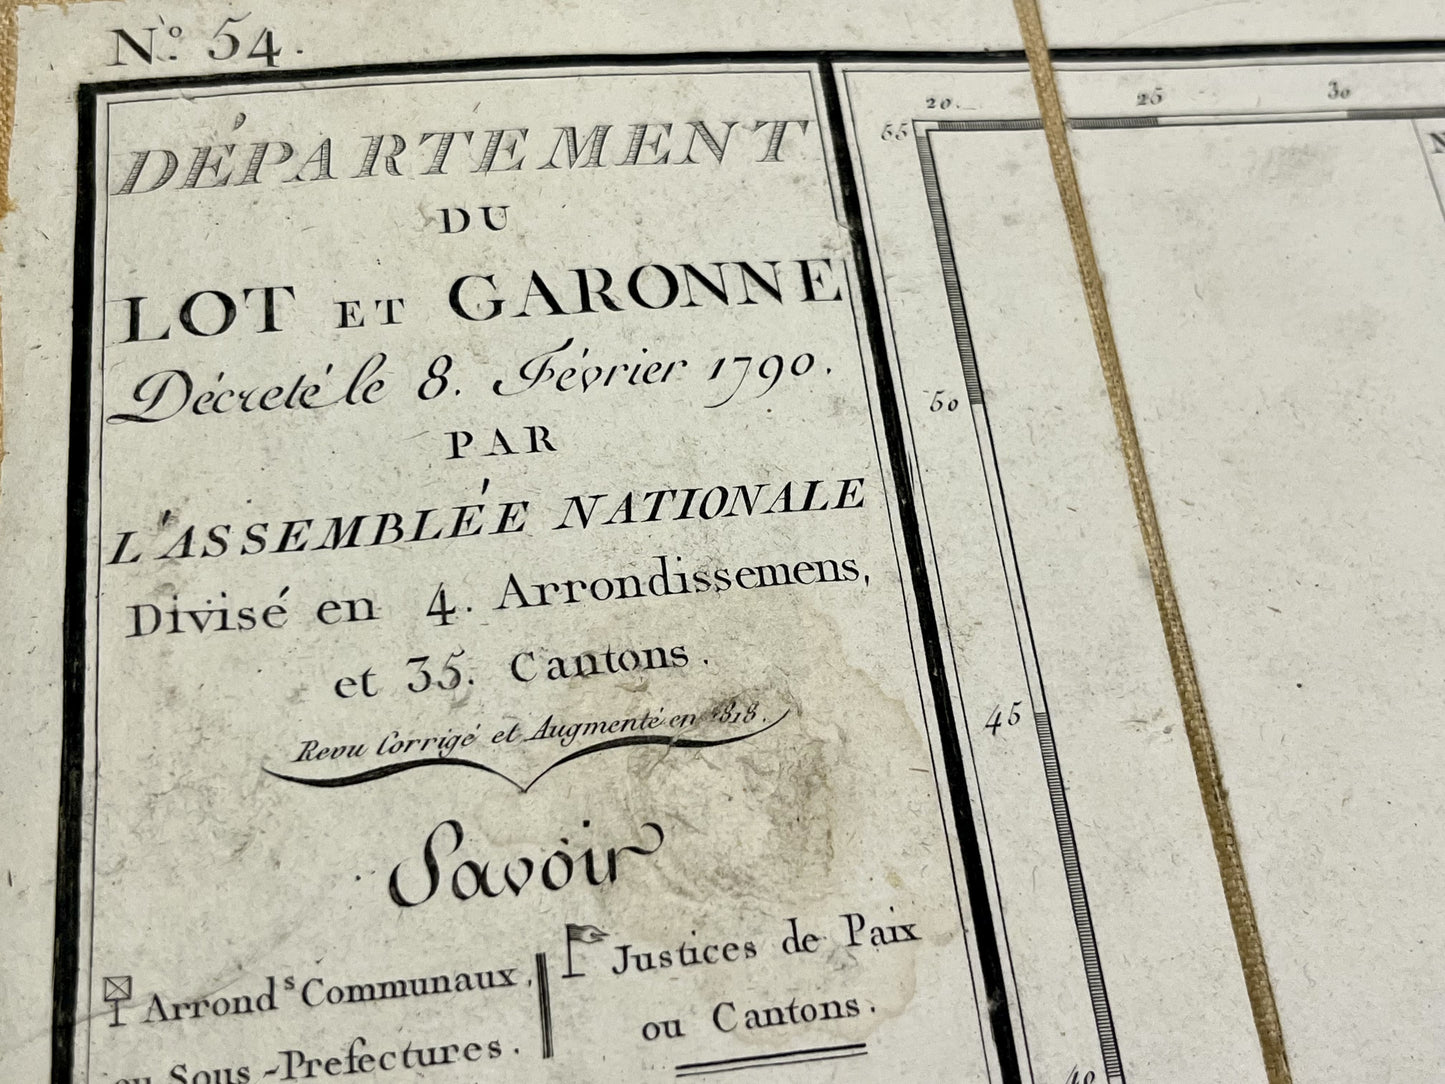 N.º 54.
DÉPARTEMENT
DU
LOT ET GARONNE
Décreté le 8. Février 1790.
PAR
L'ASSEMBLÉE NATIONALE
Divisé en 4. Arrondissemens,
et 35. Cantons.
Revu Corrigé et Augmenté en 1818.
Savoir
Arrond.s Communaux.
ou Sous-Prefectures.
Justices de Paix
ou Cantons.
20.
25
30
55
50
45
40
N